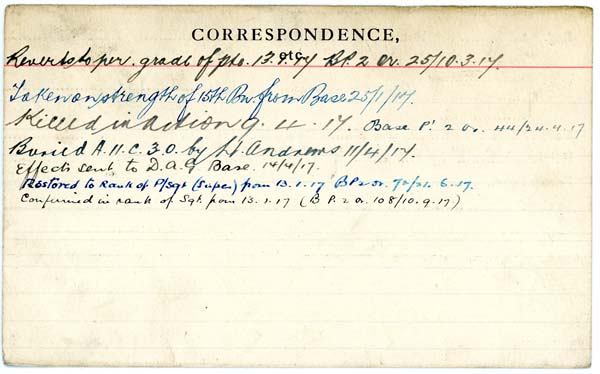 CORRESPONDENCE,
Reverts to per. grade of Pte. 13.1.17 BP. 2 Or. 25/10.3.17.
Taken on strength of 15th Bn. from Base 25/1/17.
Killed in action 9.4.17. Base P! 2 Or. 44/24.4.17
Buried A.11.C.3.0. by Lt. Andrews 11/4/17.
Effects sent to D.A.G Base. 14/4/17.
Restored to Rank of P/Sgt (Super) from 13.1.17 BP 2 Or. 72/21.6.17.
Confirmed in rank of Sgt. from 13.1.17 (B P. 2 Or. 108/10.9.17)